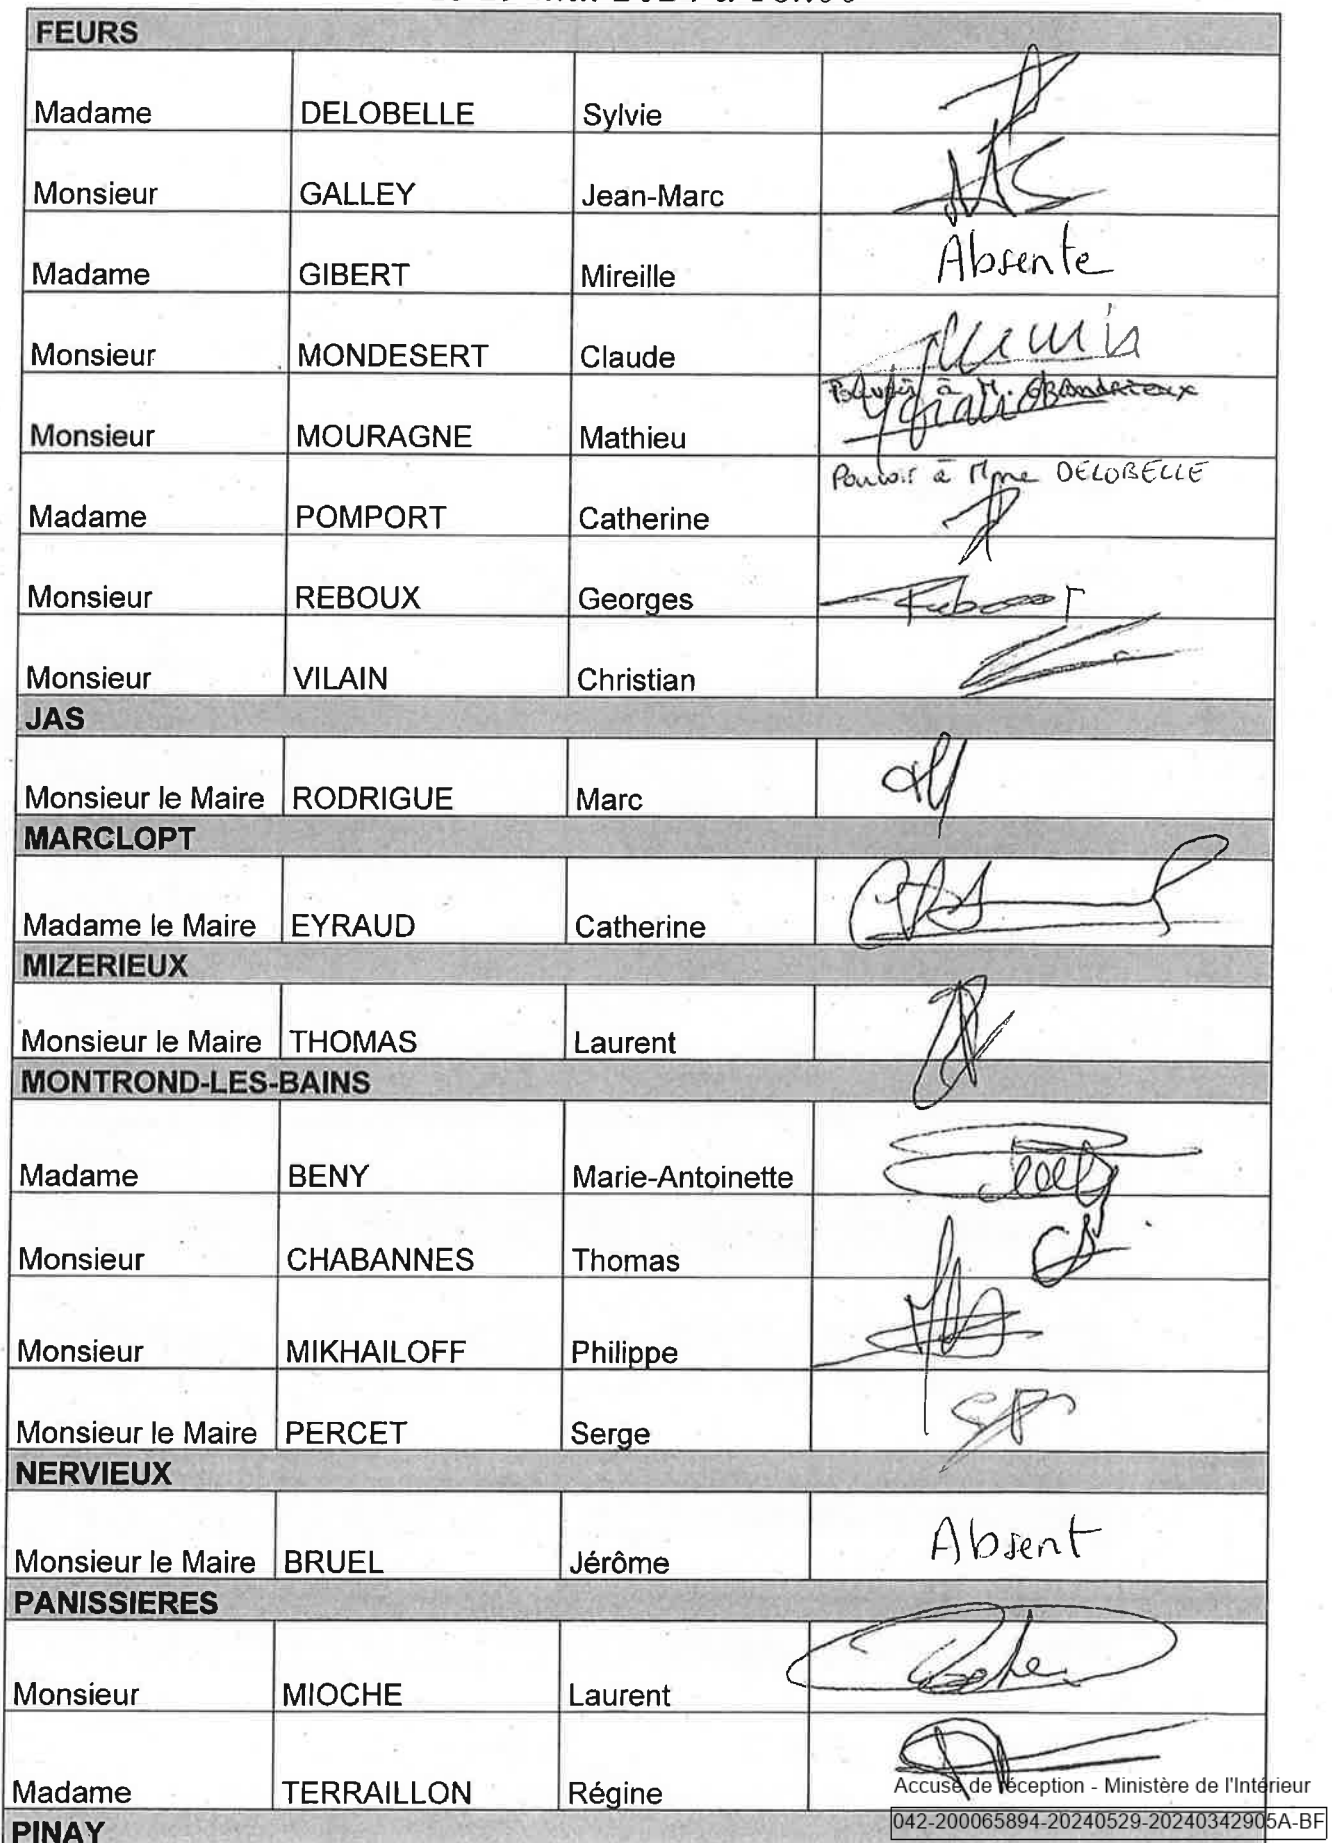 FEURS
Madame DELOBELLE Sylvie
Monsieur GALLEY Jean-Marc
Madame GIBERT Mireille Absente
Monsieur MONDESERT Claude
Pouvoir à M. GRANDRIEUX
Monsieur MOURAGNE Mathieu
Pouvoir à Mme DELOBELLE
Madame POMPORT Catherine
Monsieur REBOUX Georges
Monsieur VILAIN Christian
JAS
Monsieur le Maire RODRIGUE Marc
MARCLOPT
Madame le Maire EYRAUD Catherine
MIZERIEUX
Monsieur le Maire THOMAS Laurent
MONTROND-LES-BAINS
Madame BENY Marie-Antoinette
Monsieur CHABANNES Thomas
Monsieur MIKHAILOFF Philippe
Monsieur le Maire PERCET Serge
NERVIEUX
Monsieur le Maire BRUEL Jérôme Absent
PANISSIERES
Monsieur MIOCHE Laurent
Madame TERRAILLON Régine
Accusé de réception - Ministère de l'Intérieur
042-200065894-20240529-20240342905A-BF
PINAY